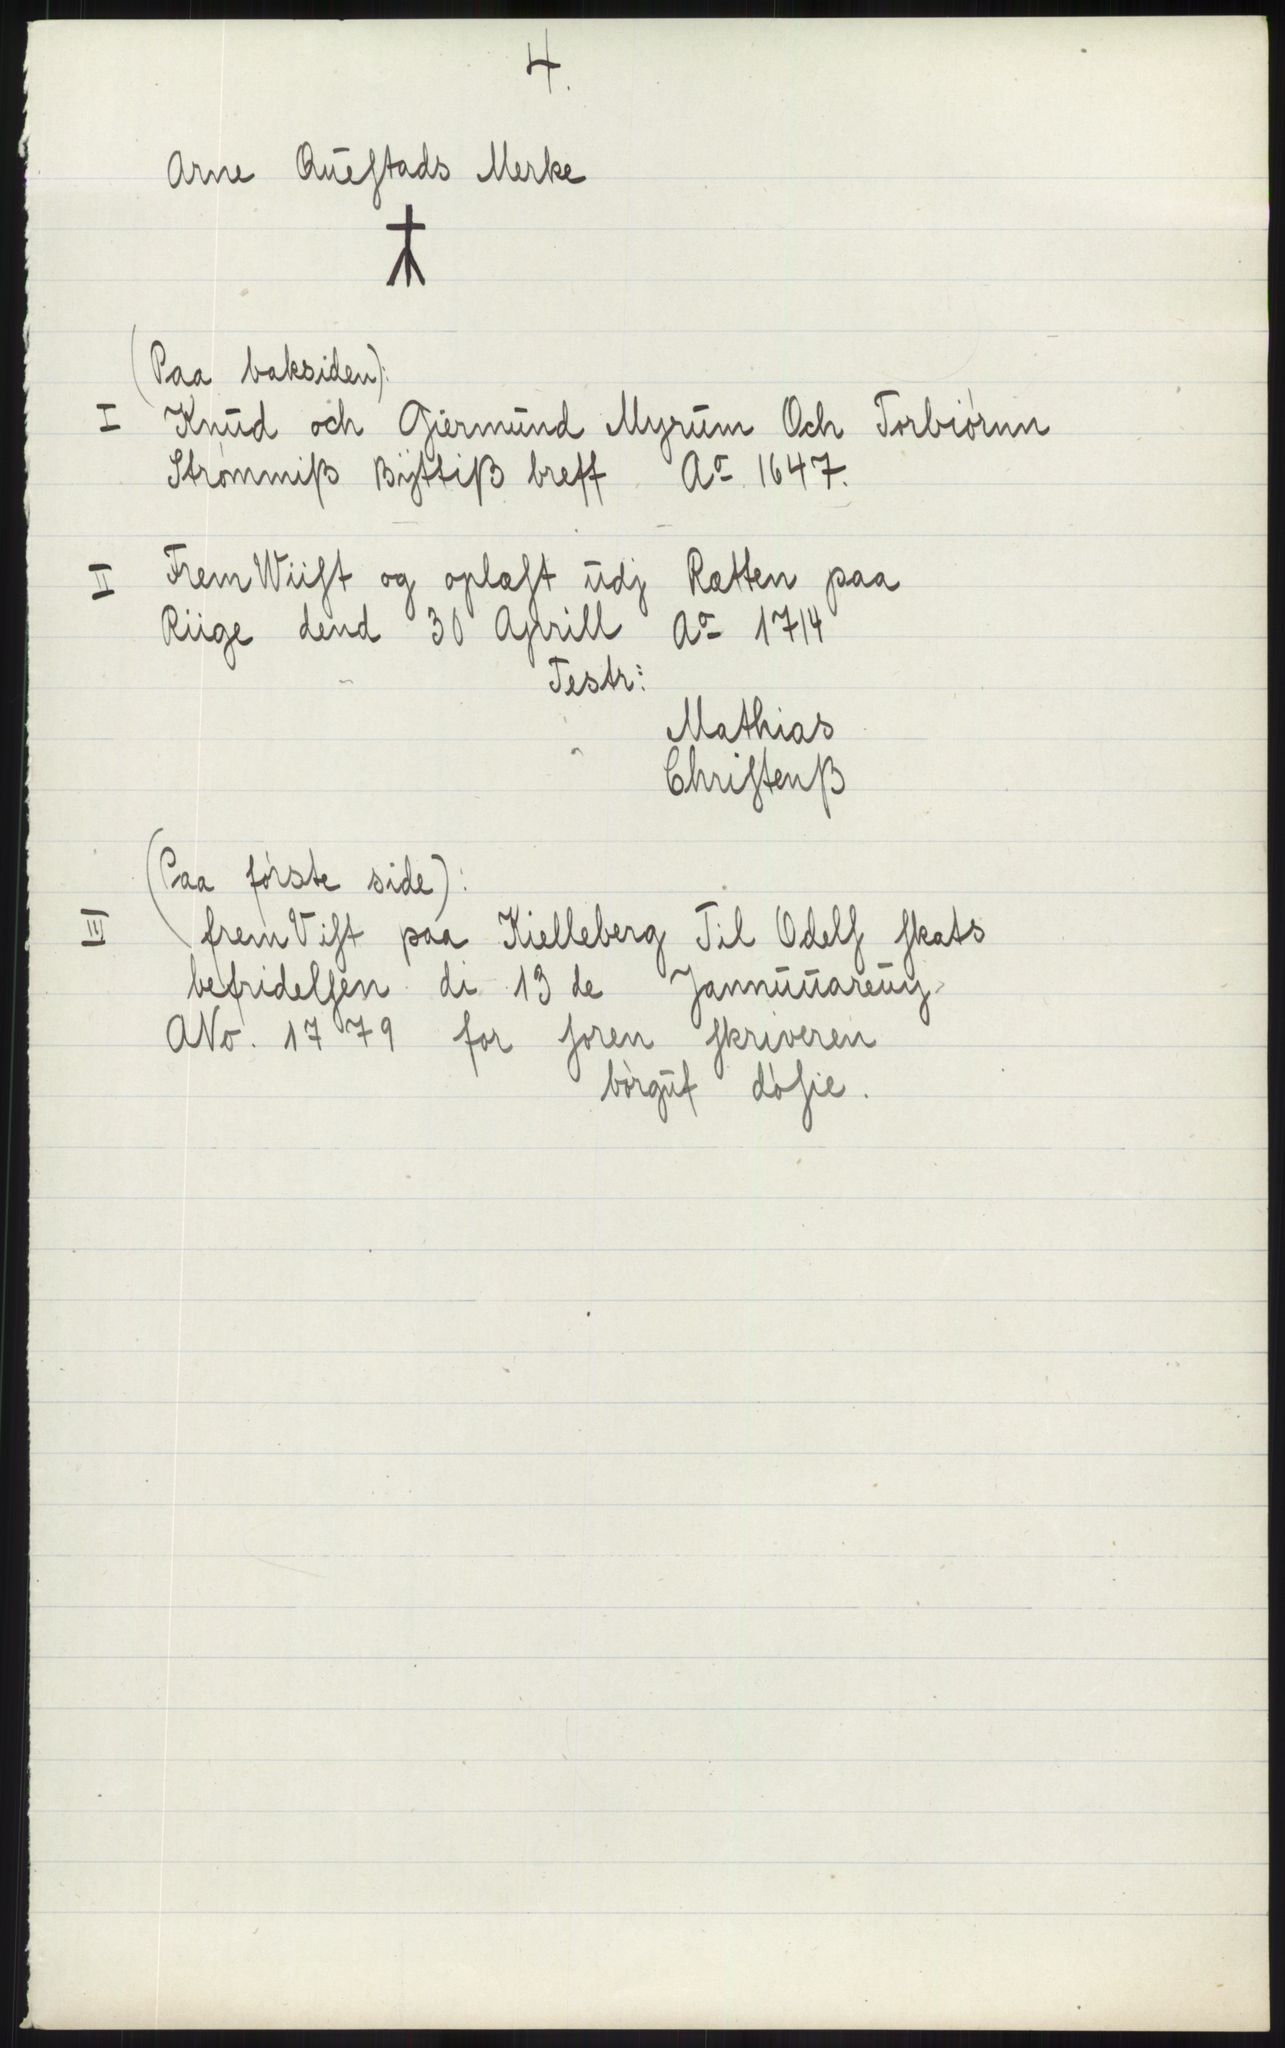 4.
Arne Queſtads Merke
(Paa baksiden):
I Knud och Giermund Myrum Och Torbiørnn
Strømmiß Byttiß breff Aº 1647.
II Frem Wiiſt og oplæſt udj Rætten paa
Riige dend 30 Aprill Aº 1714
Testr:
Mathias
Chriſtenß
(Paa første side):
III frem Viſt paa Kielleberg Til Odelſ ſkats
befridelſen di 13 de Jannuuareuy
ANo. 1779 for ſoren ſkriveren
børguf døſie.